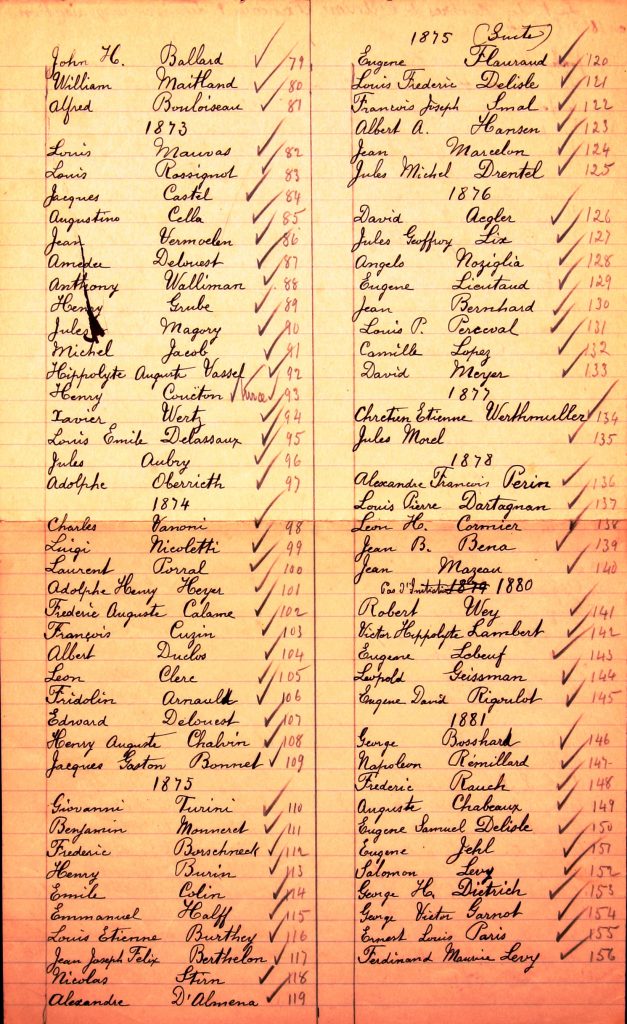 John H. Ballard ✓ 79
William Maitland ✓ 80
Alfred Bouloiseau ✓ 81
1873
Louis Mauvas ✓ 82
Louis Rossignot ✓ 83
Jacques Castel ✓ 84
Augustino Cella ✓ 85
Jean Vermoelen ✓ 86
Amedee Delouest ✓ 87
Anthony Walliman ✓ 88
Henry Grube ✓ 89
Jules Magory ✓ 90
Michel Jacob ✓ 91
Hippolyte Auguste Vassef ✓ 92
Henry Couëton ✓ 93
Xavier Wertz ✓ 94
Louis Emile Delassaux ✓ 95
Jules Aubry ✓ 96
Adolphe Oberrieth ✓ 97
1874
Charles Vanoni ✓ 98
Luigi Nicoletti ✓ 99
Laurent Porral ✓ 100
Adolphe Henry Heyer ✓ 101
Frederic Auguste Calame ✓ 102
François Cuzin ✓ 103
Albert Duclos ✓ 104
Leon Clerc ✓ 105
Fridolin Arnault ✓ 106
Edward Delouest ✓ 107
Henry Auguste Chalvin ✓ 108
Jacques Gaston Bonnet ✓ 109
1875
Giovanni Turini ✓ 110
Benjamin Monneret ✓ 111
Frederic Borschneck ✓ 112
Henry Burin ✓ 113
Emile Colin ✓ 114
Emmanuel Halff ✓ 115
Louis Etienne Burthey ✓ 116
Jean Joseph Felix Berthelon ✓ 117
Nicolas Stirn ✓ 118
Alexandre D'Almena ✓ 119
1875 (Suite)
Eugene Flauraud ✓ 120
Louis Frederic Delisle ✓ 121
Francois Joseph Smal ✓ 122
Albert A. Hansen ✓ 123
Jean Marcelon ✓ 124
Jules Michel Drentel ✓ 125
1876
David Aegler ✓ 126
Jules Geoffroy Lix ✓ 127
Angelo Noziglia ✓ 128
Eugene Lieutaud ✓ 129
Jean Bernhard ✓ 130
Louis P. Perceval ✓ 131
Camille Lopez ✓ 132
David Meyer ✓ 133
1877
Chretien Etienne Werthmuller ✓ 134
Jules Morel ✓ 135
1878
Alexandre François Perin ✓ 136
Louis Pierre Dartagnan ✓ 137
Leon H. Cormier ✓ 138
Jean B. Bena ✓ 139
Jean Mazeau ✓ 140
Pas d'Initiation 1879 1880
Robert Wey ✓ 141
Victor Hippolyte Lambert ✓ 142
Eugene Lobeuf ✓ 143
Leopold Geissman ✓ 144
Eugene David Rigoulot ✓ 145
1881
George Bosshard ✓ 146
Napoleon Rémillard ✓ 147
Frederic Rauch ✓ 148
Auguste Chabeaux ✓ 149
Eugene Samuel Delisle ✓ 150
Eugene Jehl ✓ 151
Salomon Levy ✓ 152
George H. Dietrich ✓ 153
George Victor Garnot ✓ 154
Ernest Louis Paris ✓ 155
Ferdinand Maurice Levy ✓ 156